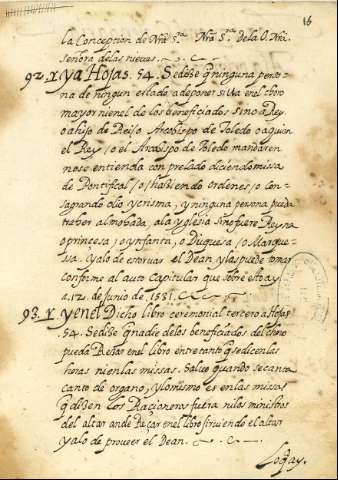 16
la Conception de Nra Sra. Nra Sra. de la O. Nra
señora de las nieues.
92. Y ya Hojas. 54. Se dize q ninguna perso-
na de ningun estado a de poner silla en el choro
mayor ni en el de los beneficiados sino a Rey
o a hijo de Rei / o Arcobispo de Toledo o a quien
el Rey / o el Arcobispo de Toledo mandaren
no se entienda con prelado diciendo missa
de Pontifical / o / haziendo ordenes / o con-
sagrando olio y crisma, y ninguna persona pueda
traher almohada, a la yglesia sino fuere Reyna
o princesa, o ynfanta, o Duquesa / o Marque-
sa. y a lo de estoruar el Dean, y las puede tomar
conforme al auto capitular que sobre esto ay
a. 12. de junio de. 1581.
93. Y. y en el Dicho libro ceremonial tercero a Hojas
54. Se dize q nadie de los beneficiados del choro
pueda Rezar en el libro entre tanto q se dicen las
horas ni en las missas. Saluo quando se canta
canto de organo, y lo mismo es en las missas
q dizen los Racioneros fuera ni los ministros
del altar an de Reçar en el libro siruiendo el altar
y a lo de proveer el Dean.